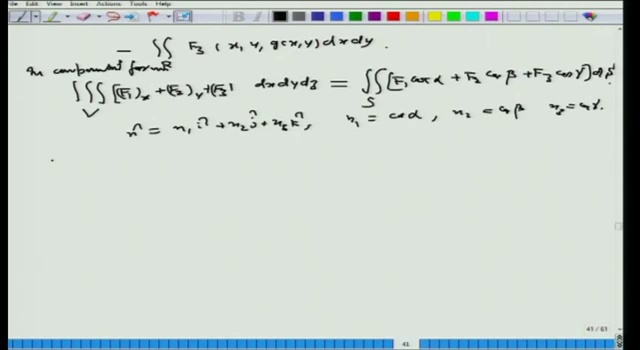 File Edit View Insert Actions Tools Help
− ∬_R F₃ (x, y, g(x, y) dx dy.
In component form
∭_V [(F₁)_x + (F₂)_y + (F₃)] dx dy dz = ∬_S [F₁ cos α + F₂ cos β + F₃ cos γ] dA
n̂ = n₁ î + n₂ ĵ + n₃ k̂, n₁ = cos α, n₂ = cos β n₃ = cos γ.
41 / 61
41